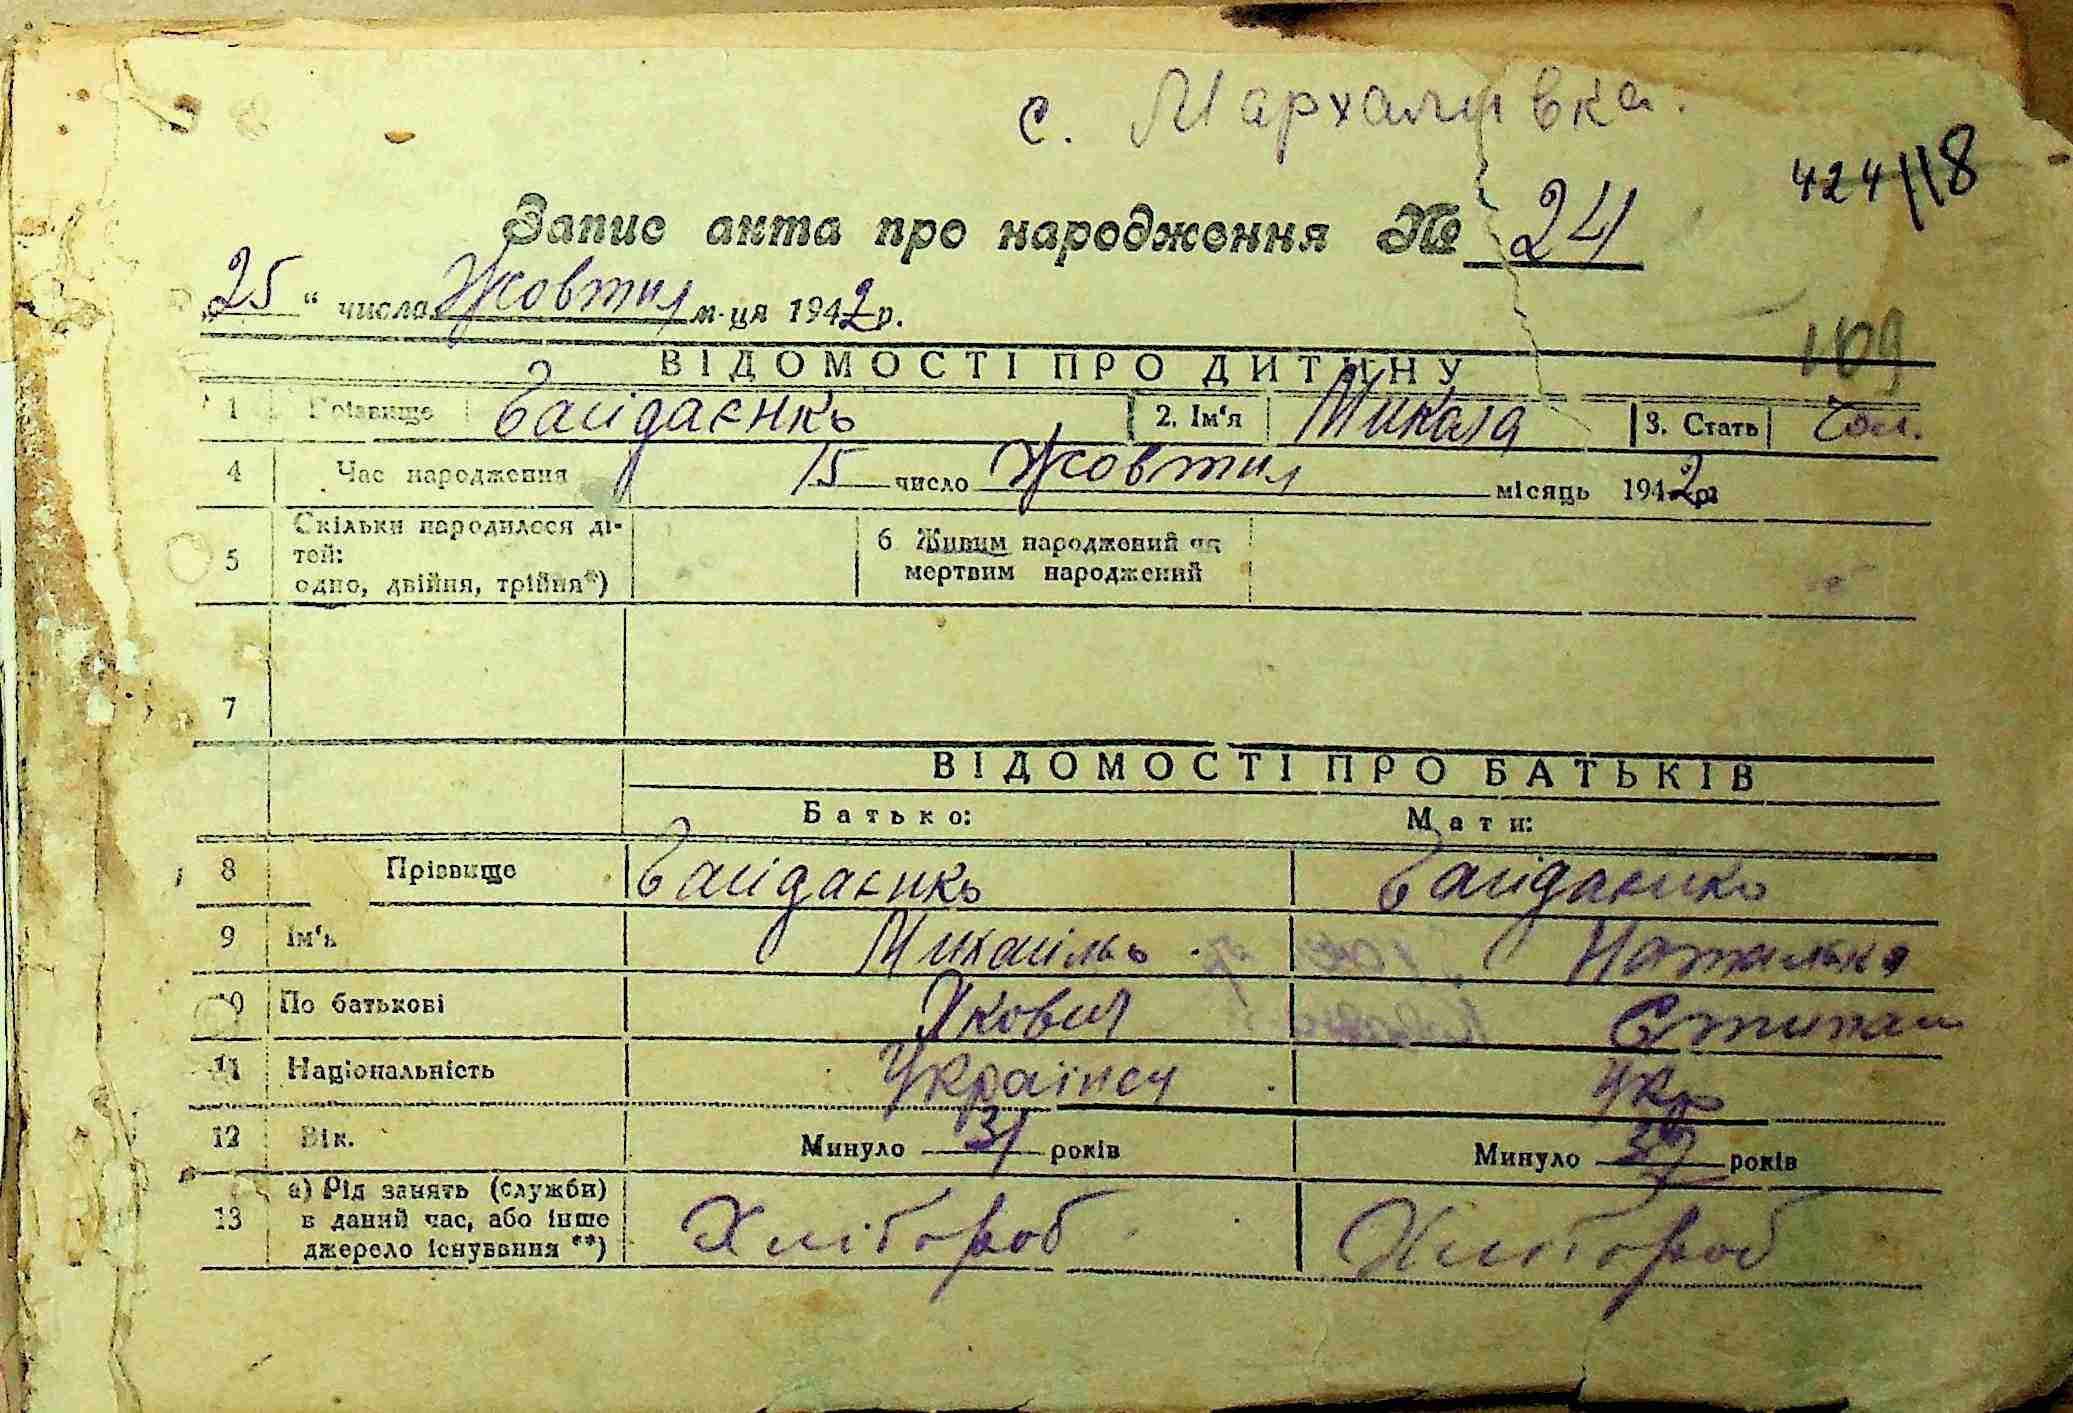 с. Мархалівка.
424/118
Запис акта про народження № 24
„25" числа Жовтня м-ця 1942 р.
109
ВІДОМОСТІ ПРО ДИТИНУ
1 Прізвище Байдаєнко 2. Ім'я Микола 3. Стать Чол.
4 Час народження 15 число Жовтня місяць 1942 р.
5 Скільки народилося дітей: одно, двійня, трійня*) 6 Живим народжений чи мертвим народжений
7
ВІДОМОСТІ ПРО БАТЬКІВ
Батько: Мати:
8 Прізвище Байдаєнко Байдаєнко
9 Ім'я Михайло Наталка
10 По батькові Яковл Степан
11 Національність Українец Укр
12 Вік. Минуло 31 років Минуло років
13 а) Рід занять (служби) в даний час, або інше джерело існування **) Хлібороб Хлібороб